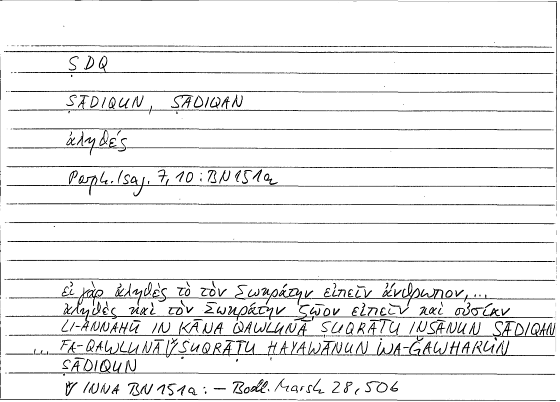 ṢDQ
ṢĀDIQUN, ṢĀDIQAN
ἀληθές
Porph. Isag. 7,10: BN151a
εἰ γὰρ ἀληθὲς τὸ τὸν Σωκράτην εἰπεῖν ἄνθρωπον,...
ἀληθὲς καὶ τὸν Σωκράτην ζῷον εἰπεῖν καὶ οὐσίαν
LI-ANNAHŪ IN KĀNA QAWLUNĀ SUQRĀṬU INSĀNUN ṢĀDIQAN
... FA-QAWLUNĀ ꟴ SUQRĀṬU ḤAYAWĀNUN WA-ǦAWHARUN
ṢĀDIQUN
INNA BN151a: – Bodl. Marsh 28,506